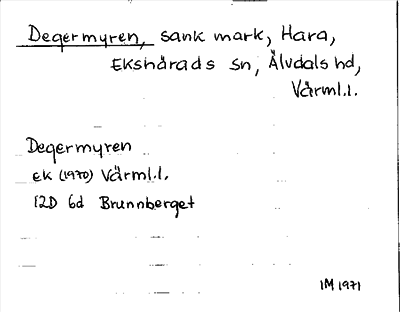 Degermyren, sank mark, Hara,
Ekshärads sn, Älvdals hd,
Värml.l.
Degermyren
ek (1970) Värml.l.
12D 6d Brunnberget
IM 1971